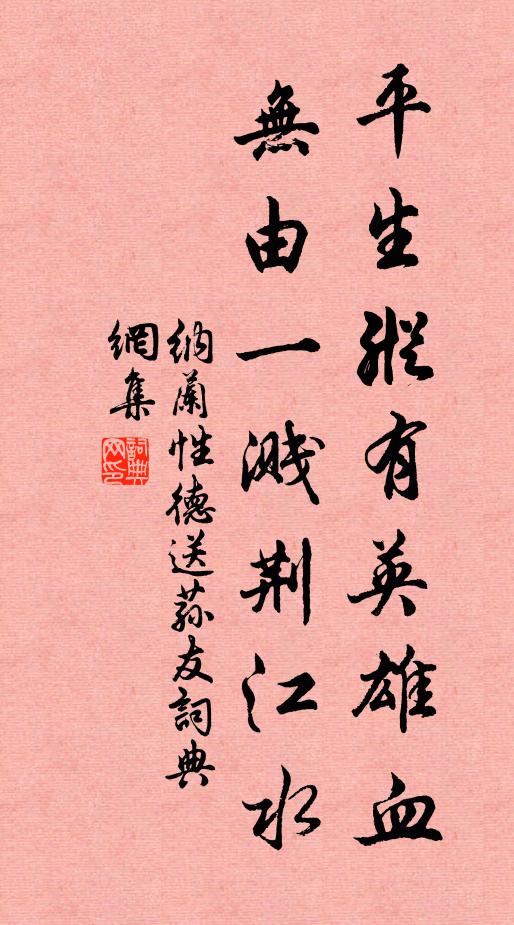 平生縱有英雄血
無由一濺荆江水
納蘭性德送蓀友詞典
網集
詞典
网印